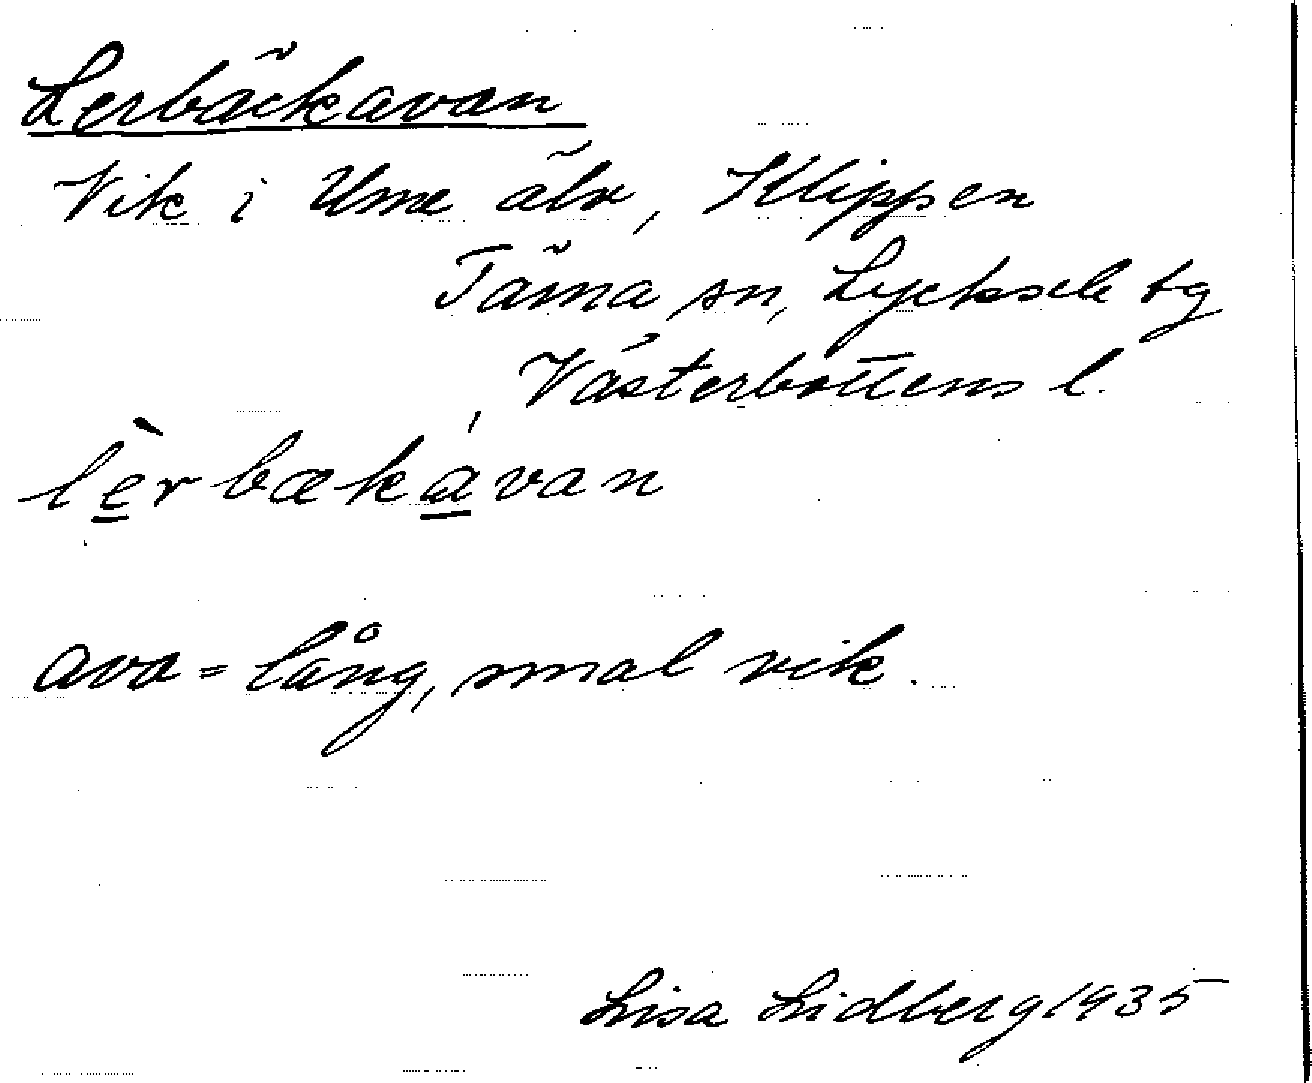 Lerbäckavan
Vik i Ume älv, Klippen
Tärna sn, Lycksele tg
Västerbottens l.
lèrbækávan
ava = lång, smal vik.
Lisa Lidberg 1935